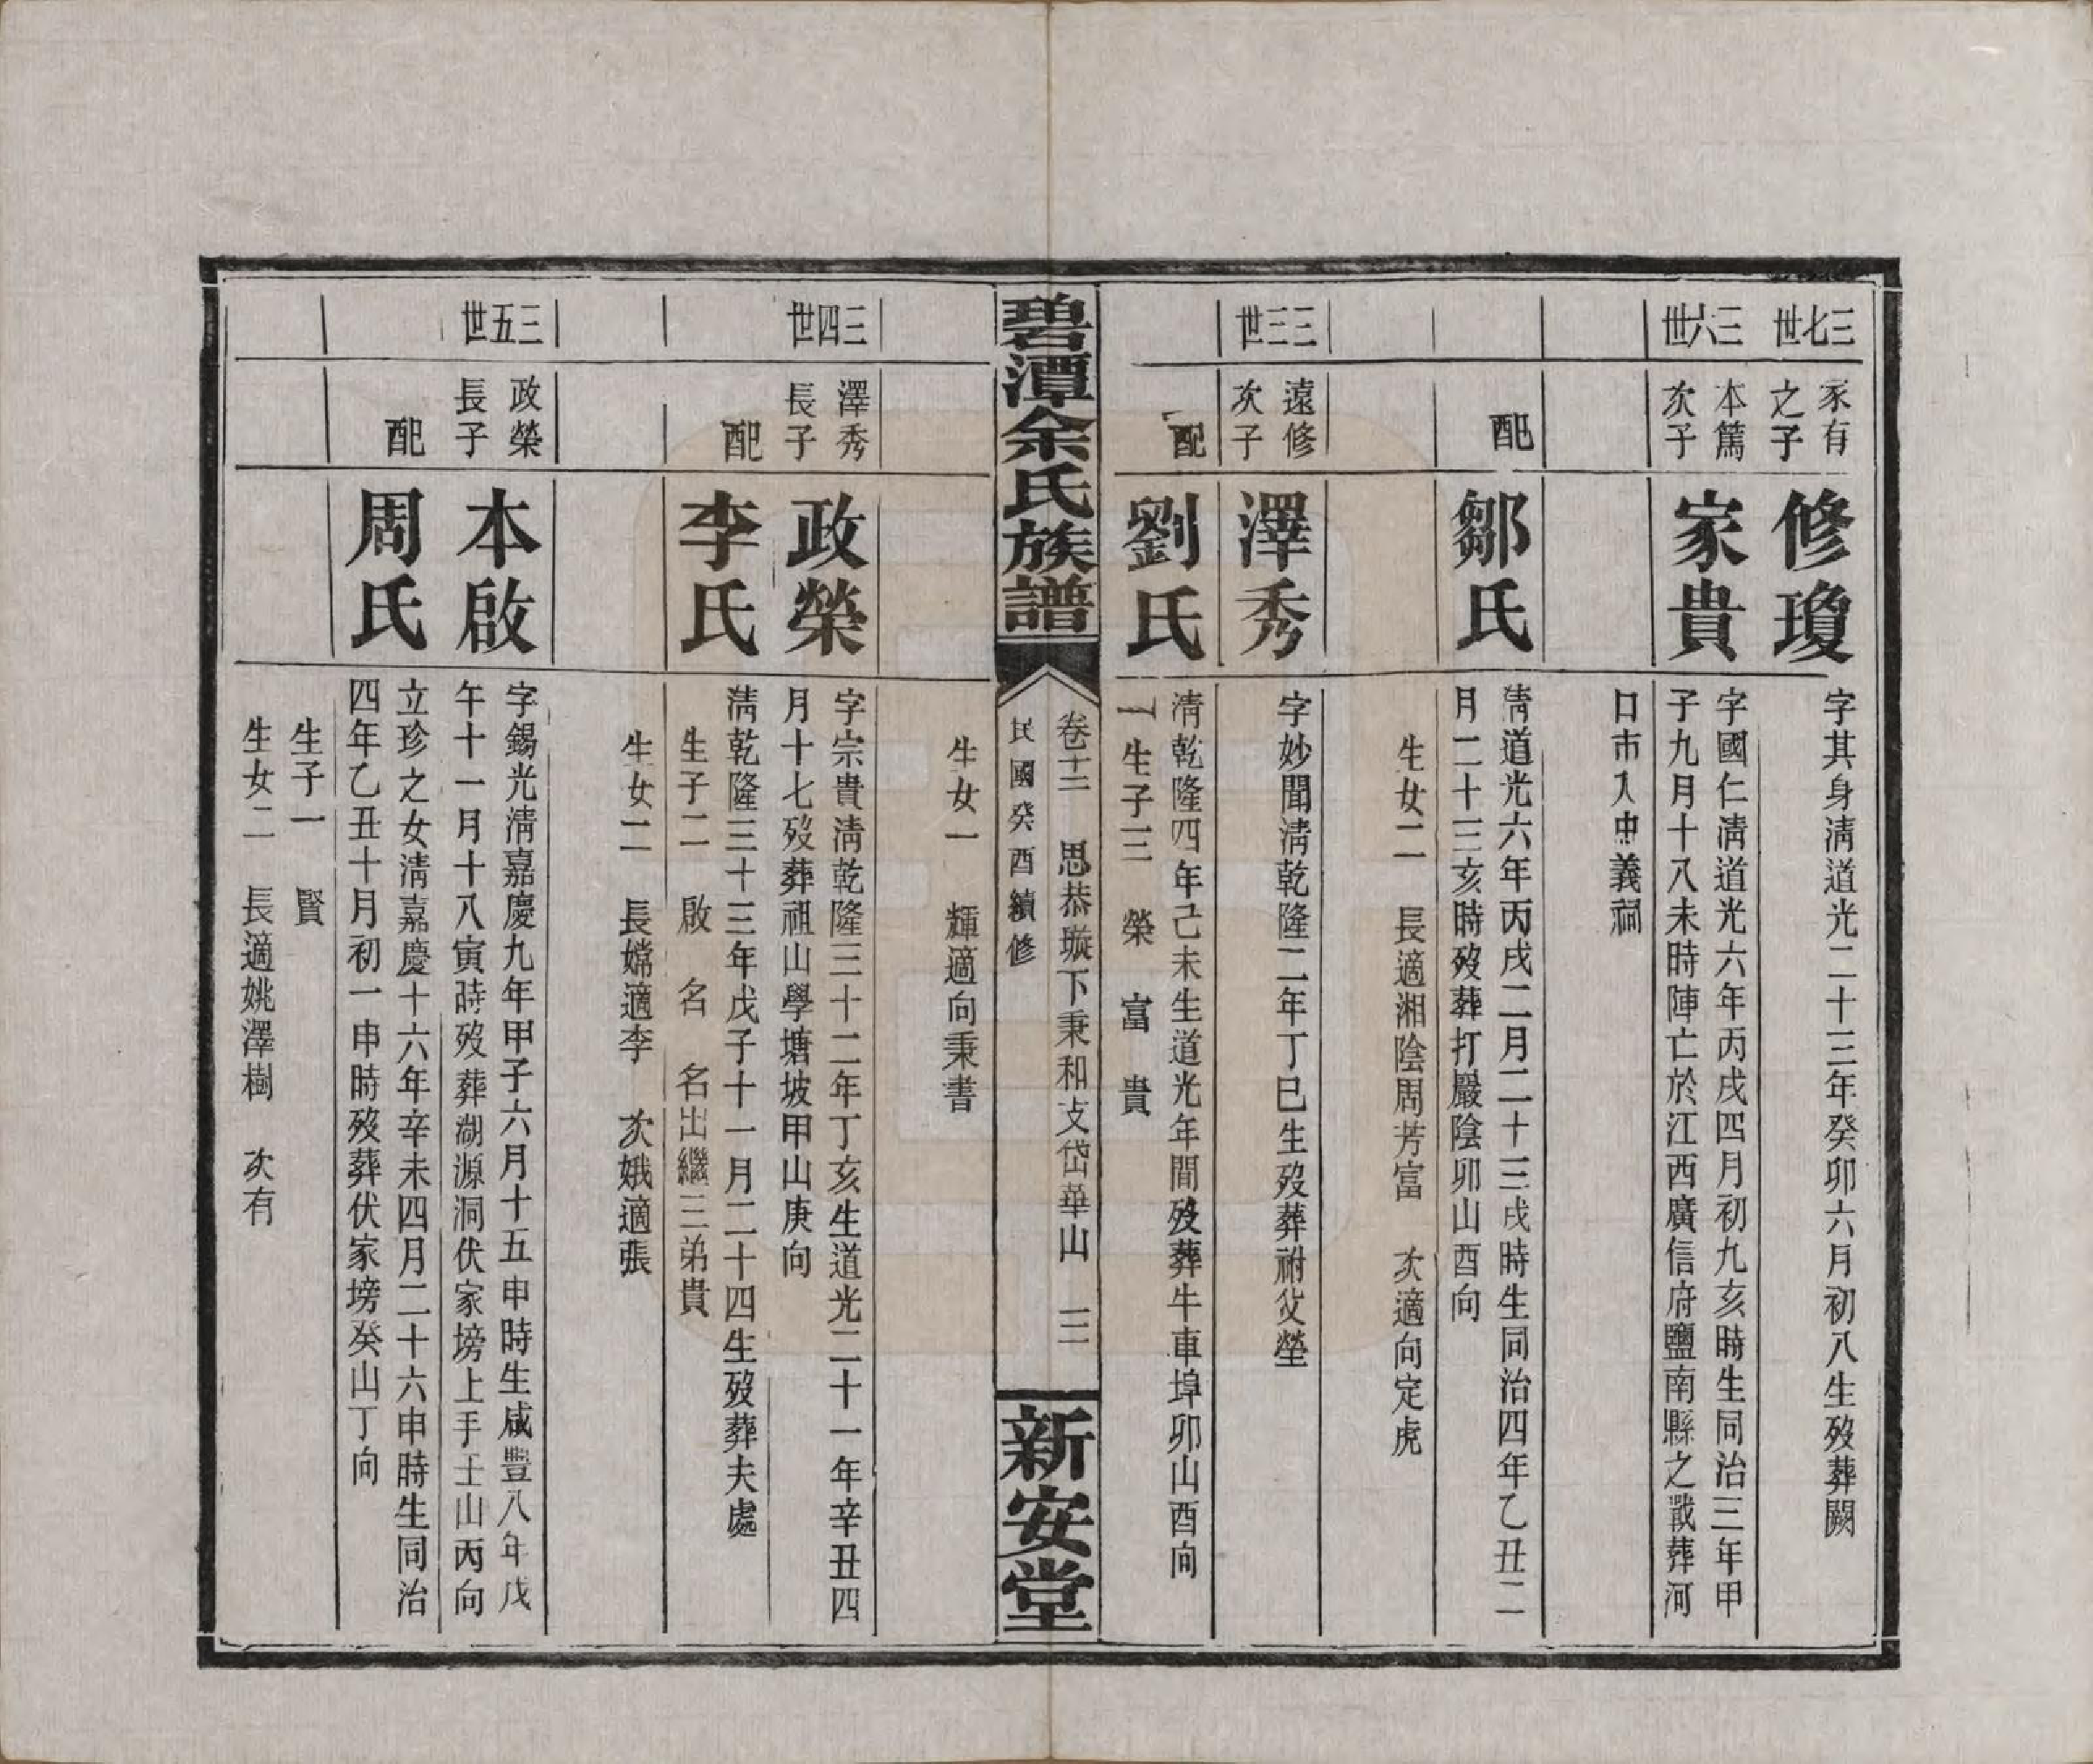 三七世
家有
之子
修瓊
字其身淸道光二十三年癸卯六月初八生歿葬闕
三六世
本篤
次子
家貴
字國仁淸道光六年丙戌四月初九亥時生同治三年甲
子九月十八未時陣亡於江西廣信府鹽南縣之戰葬河
口市入忠義祠
配
鄒氏
淸道光六年丙戌二月二十三戌時生同治四年乙丑二
月二十三亥時歿葬打嚴陰卯山酉向
生女二 長適湘陰周芳富 次適向定虎
三三世
遠修
次子
澤秀
字妙聞淸乾隆二年丁巳生歿葬祔父塋
配
劉氏
淸乾隆四年己未生道光年間歿葬牛車埠卯山酉向
生子三 榮 富 貴
碧潭余氏族譜
卷十三 思恭璇下秉和支岱華山 二
民國癸酉續修
新安堂
生女一 輝適向秉書
三四世
澤秀
長子
政榮
字宗貴淸乾隆三十二年丁亥生道光二十一年辛丑四
月十七歿葬祖山學塘坡甲山庚向
配
李氏
淸乾隆三十三年戊子十一月二十四生歿葬夫處
生子二 啟 名 名出繼三弟貴
生女二 長嫦適李 次娥適張
三五世
政榮
長子
本啟
字錫光淸嘉慶九年甲子六月十五申時生咸豐八年戊
午十一月十八寅時歿葬湖源洞伏家塝上手壬山丙向
配
周氏
立珍之女淸嘉慶十六年辛未四月二十六申時生同治
四年乙丑十月初一申時歿葬伏家塝癸山丁向
生子一 賢
生女二 長適姚澤樹 次有